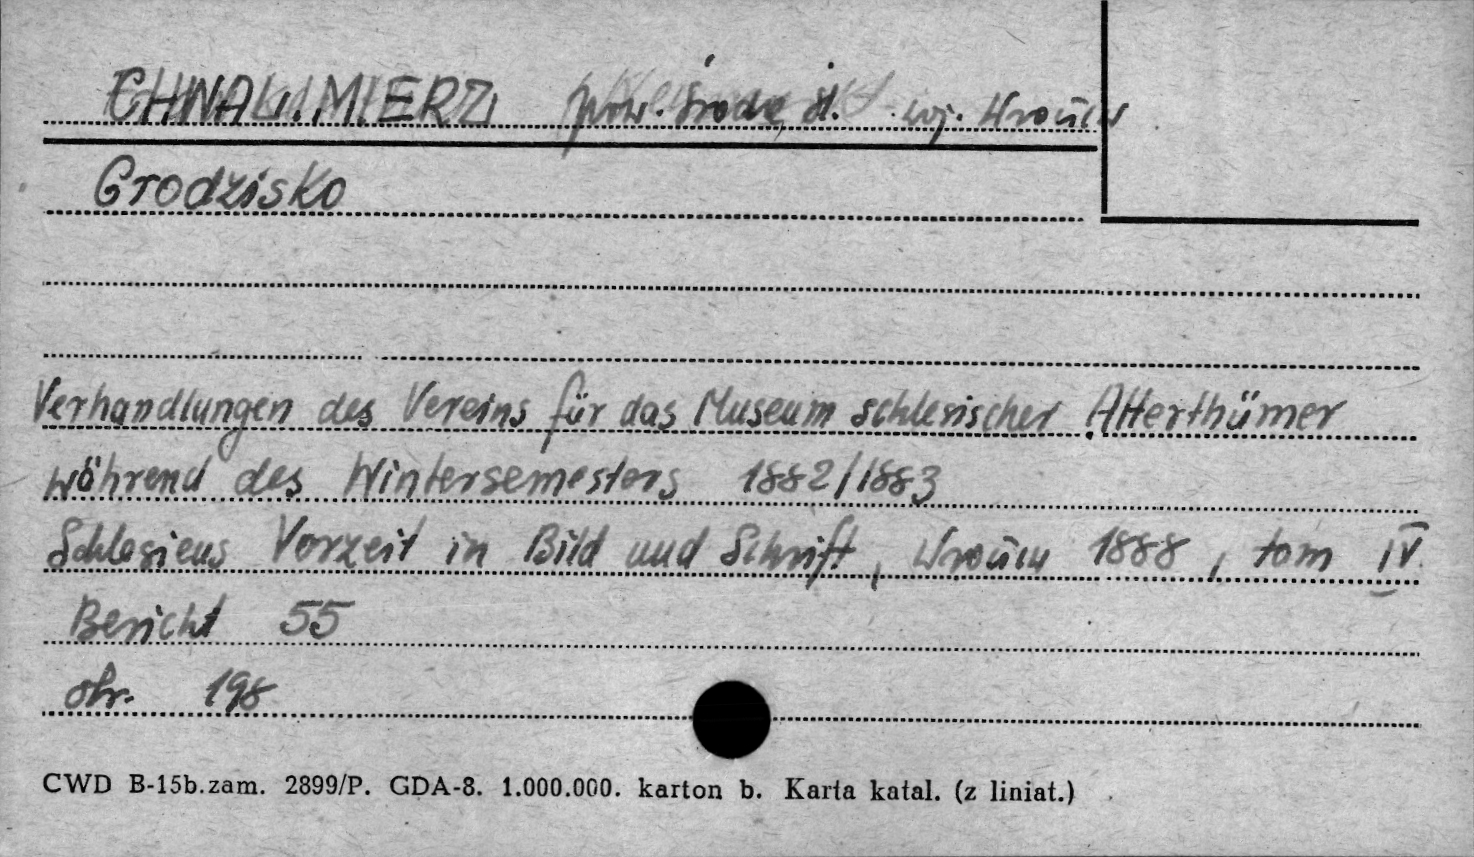 CHWALIMIERZ pow. Środa śl. woj. Wrocław
Grodzisko
Verhandlungen des Vereins für das Museum schlesischer Alterthümer
während des Wintersemesters 1882/1883
Schlesiens Vorzeit in Bild und Schrift, Wrocław 1888, tom IV
Bericht 55
str. 198
CWD B-15b.zam. 2899/P. GDA-8. 1.000.000. karton b. Karta katal. (z liniat.)